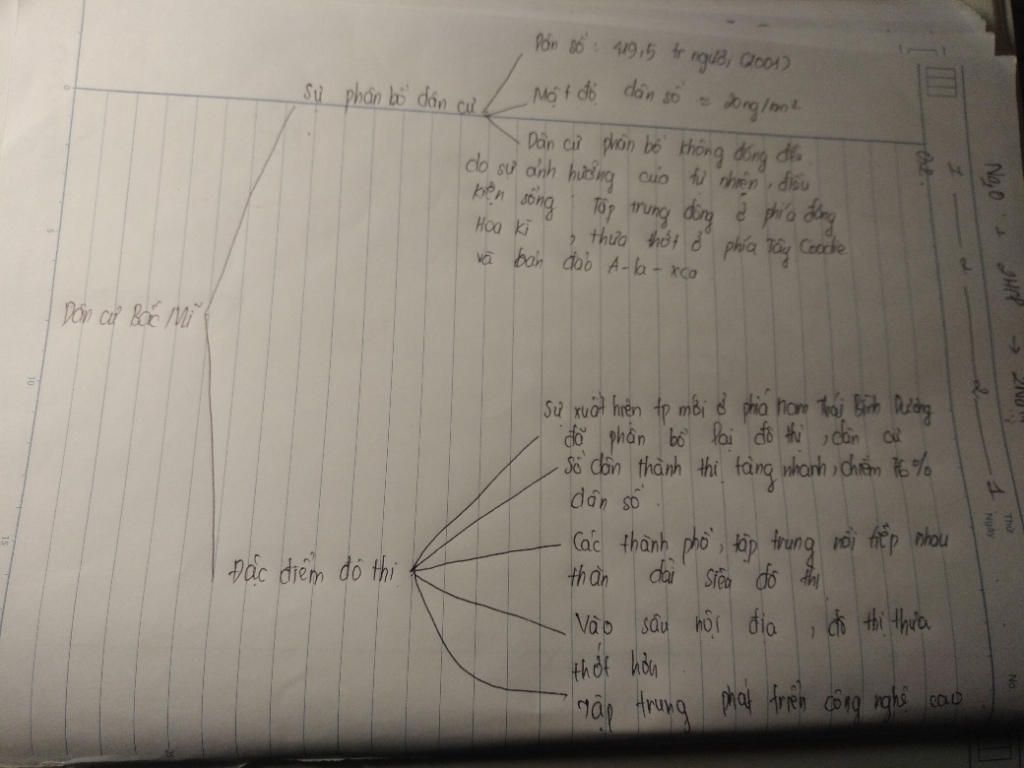 Dân số : 419,5 tr người (2001)
Sự phân bố dân cư
Mật độ dân số = 20ng/km²
Dân cư phân bố không đồng đều
do sự ảnh hưởng của tự nhiên, điều
kiện sống. Tập trung đông ở phía đông
Hoa kì, thưa thớt ở phía Tây Coocđie
và bán đảo A-la-xca
Dân cư Bắc Mĩ
Sự xuất hiện tp mới ở phía nam Thái Bình Dương
đã phân bố lại đô thị, dân cư
Số dân thành thị tăng nhanh, chiếm 76%
dân số
Các thành phố, tập trung nối tiếp nhau
thàn dải siêu đô thị
Đặc điểm đô thị
Vào sâu nội địa, đô thị thưa
thớt hơn
Tập trung phát triển công nghệ cao
Thứ
Ngày
No.